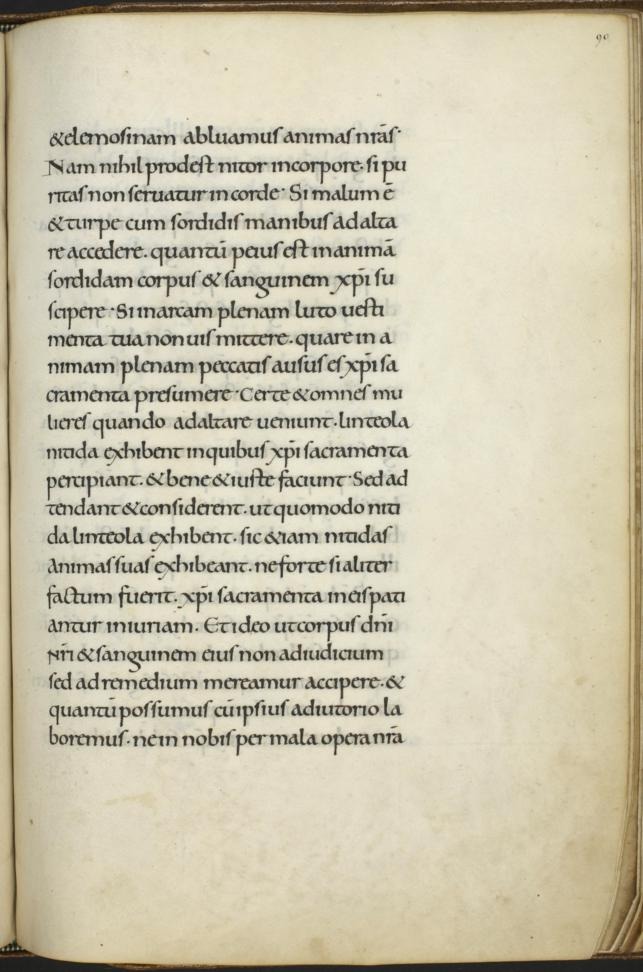 90
&elemosinam abluamus animas nr̄as·
Nam nihil prodest nitor incorpore· si pu
ritas non seruatur in corde· Si malum ē
& turpe cum sordidis manibus ad alta
re accedere· quantū peius est in animā
sordidam corpus & sanguinem xp̄i su
scipere· Si in arcam plenam luto uesti
menta tua non uis mittere· quare in a
nimam plenam peccatis ausus es xp̄i sa
cramenta presumere· Certe & omnes mu
lieres quando ad altare ueniunt· linteola
nitida exhibent in quibus xp̄i sacramenta
percipiant· & bene & iuste faciunt· Sed ad
tendant & considerent· ut quomodo niti
da linteola exhibent· sic &iam nitidas
animas suas exhibeant· ne forte si aliter
factum fuerit· xp̄i sacramenta in eis pati
antur iniuriam· Et ideo ut corpus dn̄i
nr̄i & sanguinem eius non ad iudicium
sed ad remedium mereamur accipere· &
quantū possumus cū ipsius adiutorio la
boremus· ne in nobis per mala opera nr̄a